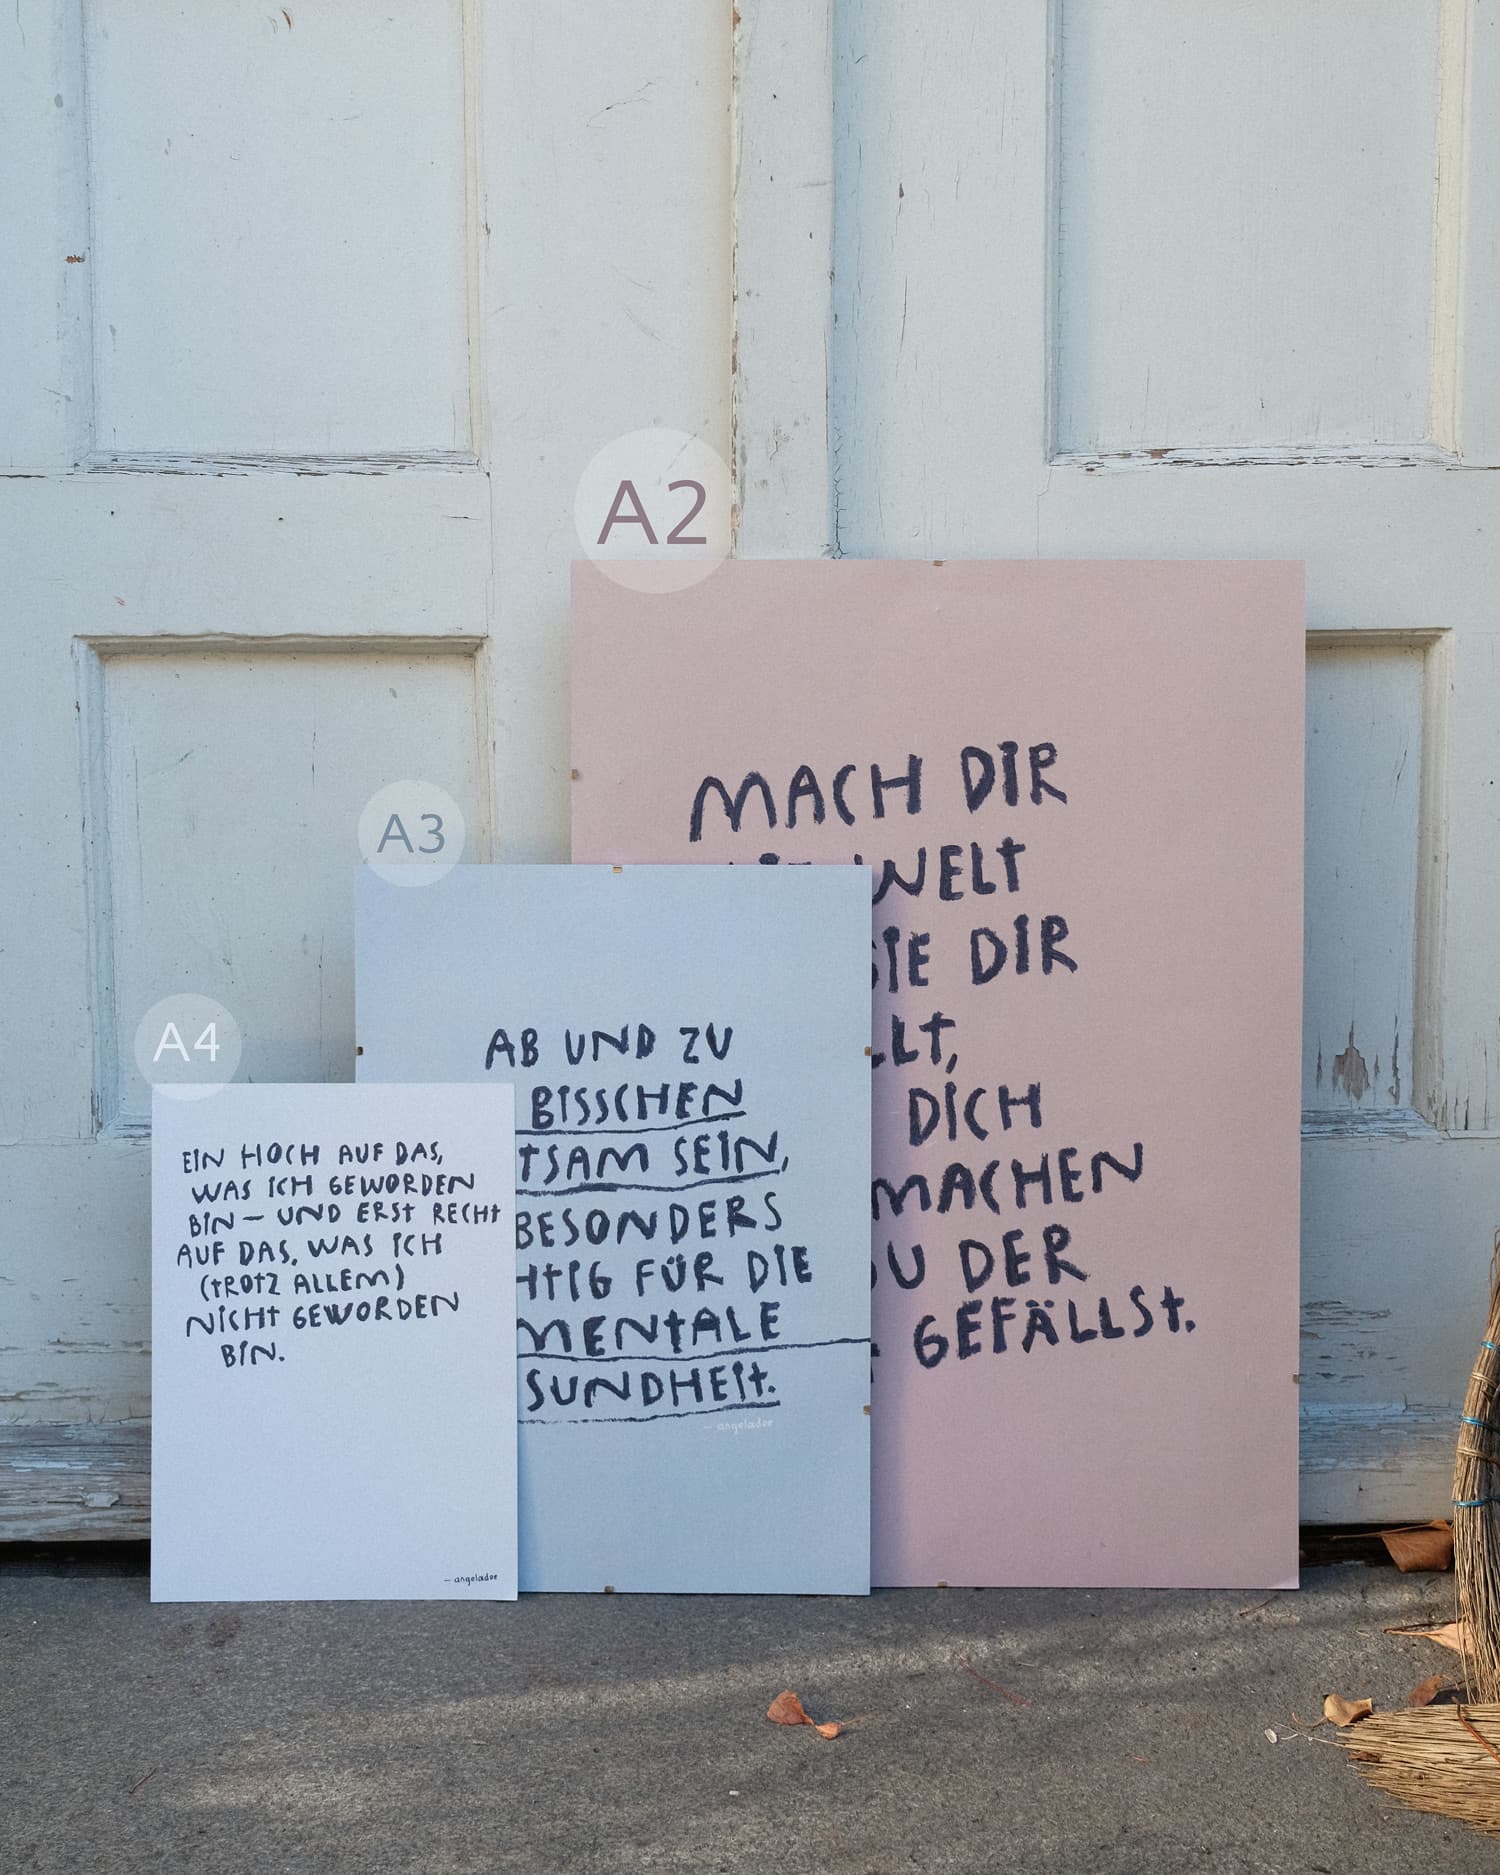 A2
MACH DIR
WELT
SIE DIR
DICH
MACHEN
DU DER
GEFÄLLST.
A3
AB UND ZU
BISSCHEN
SEIN,
BESONDERS
FÜR DIE
MENTALE
A4
EIN HOCH AUF DAS,
WAS ICH GEWORDEN
BIN – UND ERST RECHT
AUF DAS, WAS ICH
(TROTZ ALLEM)
NICHT GEWORDEN
BIN.
– angeladoe
– angeladoe